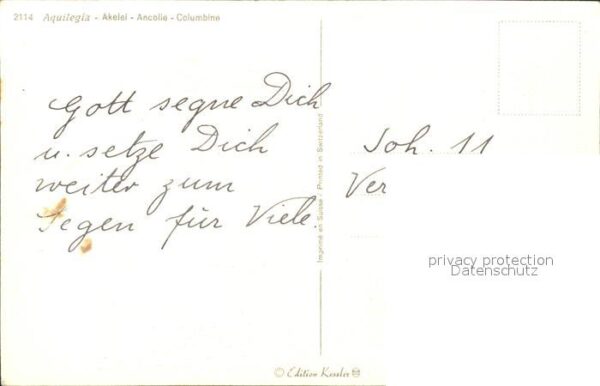 2114 Aquilegia - Akelei - Ancolie - Columbine
Gott segne Dich
u. setze Dich
weiter zum
Segen für Viele.
Imprimé en Suisse - Printed in Switzerland
Joh. 11
Ver
privacy protection
Datenschutz
© Edition Kessler